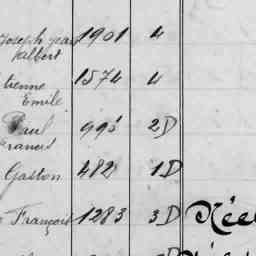 Joseph Jean 1901 4
Albert
tienne 1574 4
Emile
Paul 995 2D
Francis
Gaston 482 1D
François 1283 3D Née